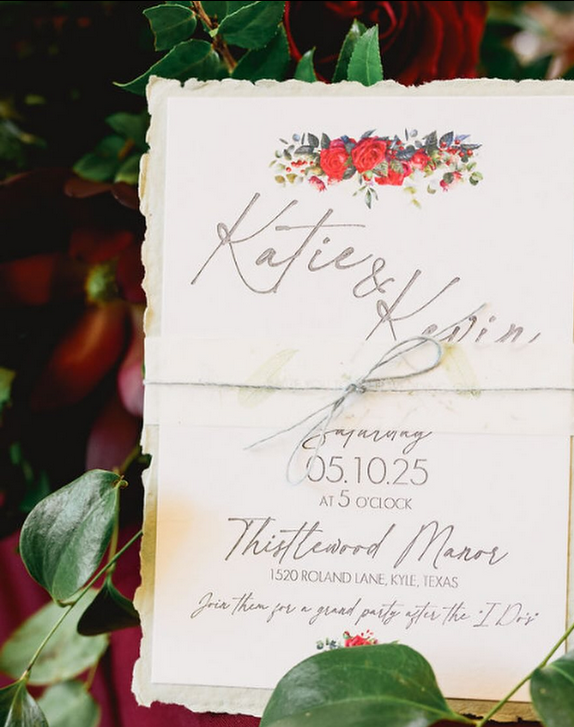 Katie
&
Kevin,
Saturday
05.10.25
AT 5 O'CLOCK
Thistlewood Manor
1520 ROLAND LANE, KYLE, TEXAS
Join them for a grand party after the "I Do's"